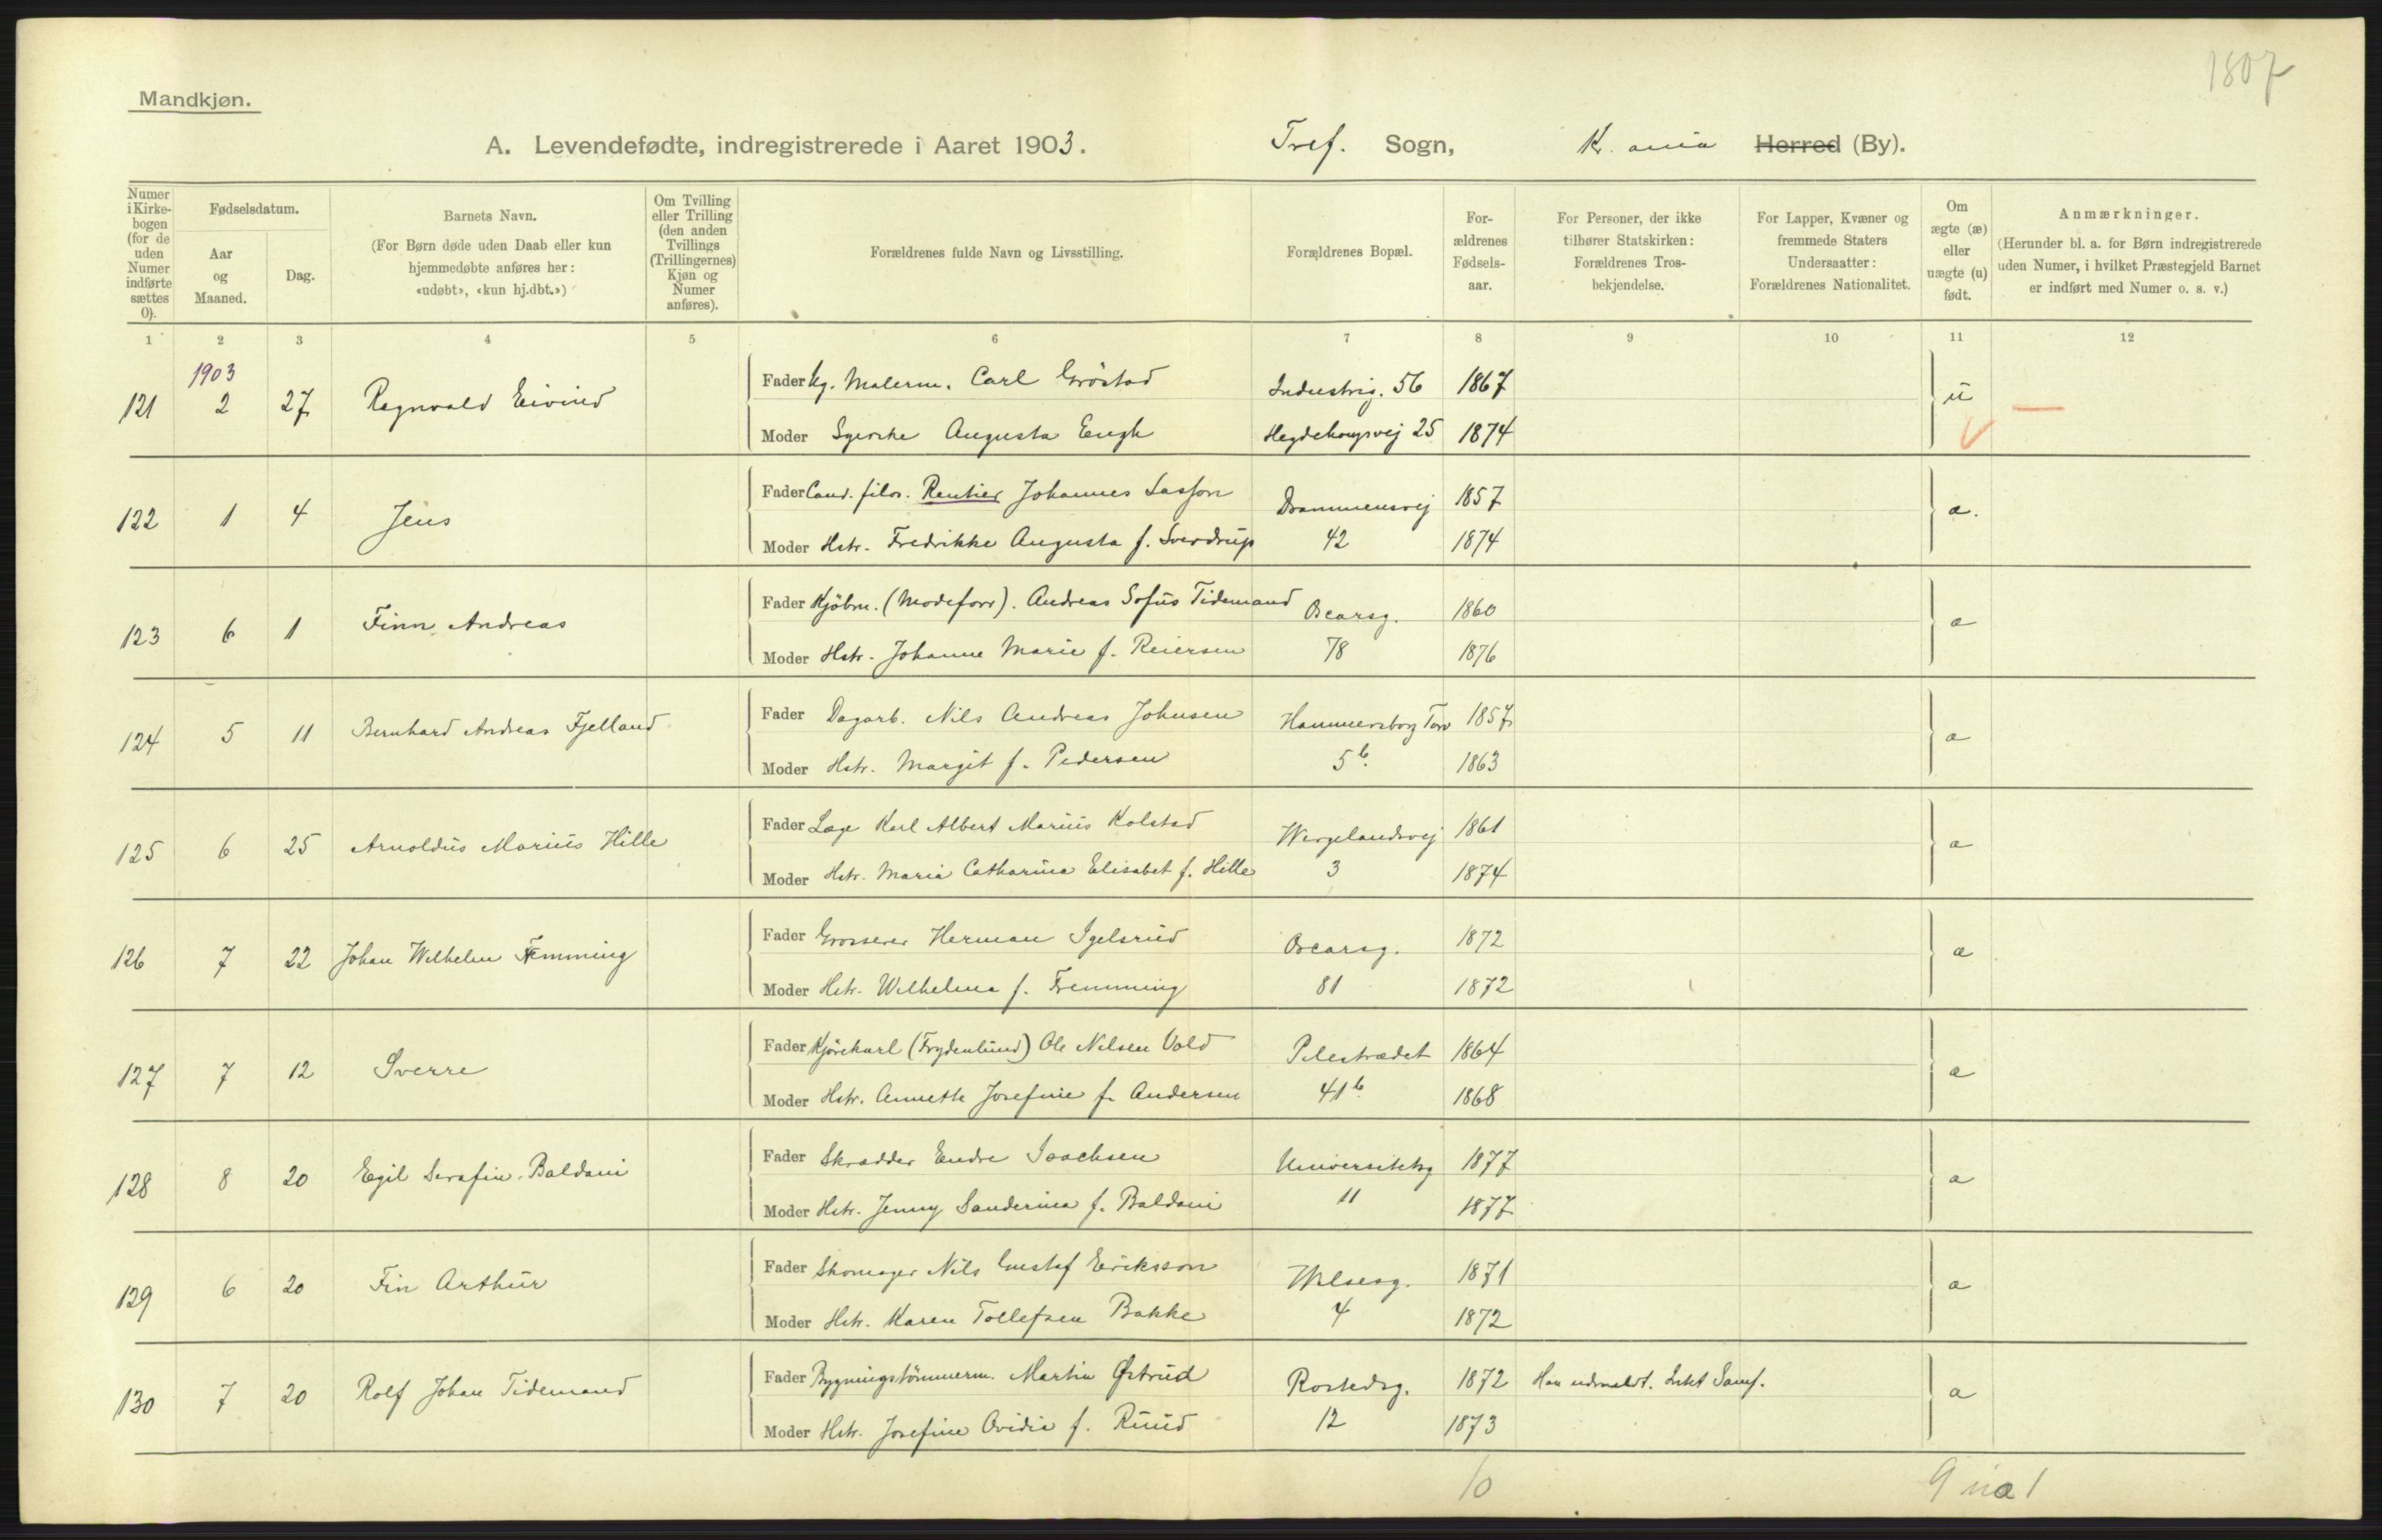 1807
Mandkjøn.
A. Levendefødte, indregistrerede i Aaret 1903. Tref. Sogn, Kr. ania Herred (By).
Numer i Kirke-bogen (for de uden Numer indførte sættes 0).
Fødselsdatum.
Aar og Maaned.
Dag.
Barnets Navn.
(For Børn døde uden Daab eller kun hjemmedøbte anføres her: «udøbt», «kun hj.dbt.»)
Om Tvilling eller Trilling (den anden Tvillings (Trillingernes) Kjøn og Numer anføres).
Forældrenes fulde Navn og Livsstilling.
Forældrenes Bopæl.
For-ældrenes Fødsels-aar.
For Personer, der ikke tilhører Statskirken: Forældrenes Tros-bekjendelse.
For Lapper, Kvæner og fremmede Staters Undersaatter: Forældrenes Nationalitet.
Om ægte (æ) eller uægte (u) født.
Anmærkninger.
(Herunder bl. a. for Børn indregistrerede uden Numer, i hvilket Præstegjeld Barnet er indført med Numer o. s. v.)
1 2 3 4 5 6 7 8 9 10 11 12
1903
121 2 27 Ragnvald Eivind Fader Ug. Malerm. Carl Gröstad Industrig. 56 1867 u
Moder Syerske Augusta Engh Hegdehaugsvej 25 1874
122 1 4 Jens Fader Cand. filos. Rentier Johannes Sasson Drammensvej 1857 æ.
Moder Hstr. Fredrikke Augusta f. Sverdrup 42 1874
123 6 1 Finn Andreas Fader Kjöbm. (Modeforr). Andreas Sofus Tidemand Oscarsg. 1860 æ
Moder Hstr. Johanne Marie f. Reiersen 78 1876
124 5 11 Bernhard Andreas Fjelland Fader Dagarb. Nils Andreas Johnsen Hammersborg Torv 1857 æ
Moder Hstr. Margit f. Pedersen 5 b. 1863
125 6 25 Arnoldus Marius Hille Fader Læge Karl Albert Marius Kolstad Wergelandsvej 1861 æ
Moder Hstr. Maria Catharina Elisabet f. Hille 3 1874
126 7 22 Johan Wilhelm Femming Fader Grosserer Herman Igelsrud Oscarsg. 1872 æ
Moder Hstr. Wilhelma f. Fremming 81 1872
127 7 12 Sverre Fader Kjörekarl (Frydenlund) Ole Nilsen Vold Pilestrædet 1864 æ
Moder Hstr. Annette Josefine f. Andersen 41 b. 1868
128 8 20 Egil Serafin Baldani Fader Skrædder Endre Isachsen Universitetsg 1877 æ
Moder Hstr. Jenny Sanderina f. Baldani 11 1877
129 6 20 Fin Arthur Fader Skomager Nils Gustaf Eriksson Wilsesg. 1871 æ
Moder Hstr. Karen Tollefsen Bakke 4 1872
130 7 20 Rolf Johan Tidemand Fader Bygningstömmerm. Martin Østrud Rostedsg. 1872 Han udmeldt. Intet Samf. æ
Moder Hstr. Josefine Ovidie f. Ruud 12 1873
10 9 1